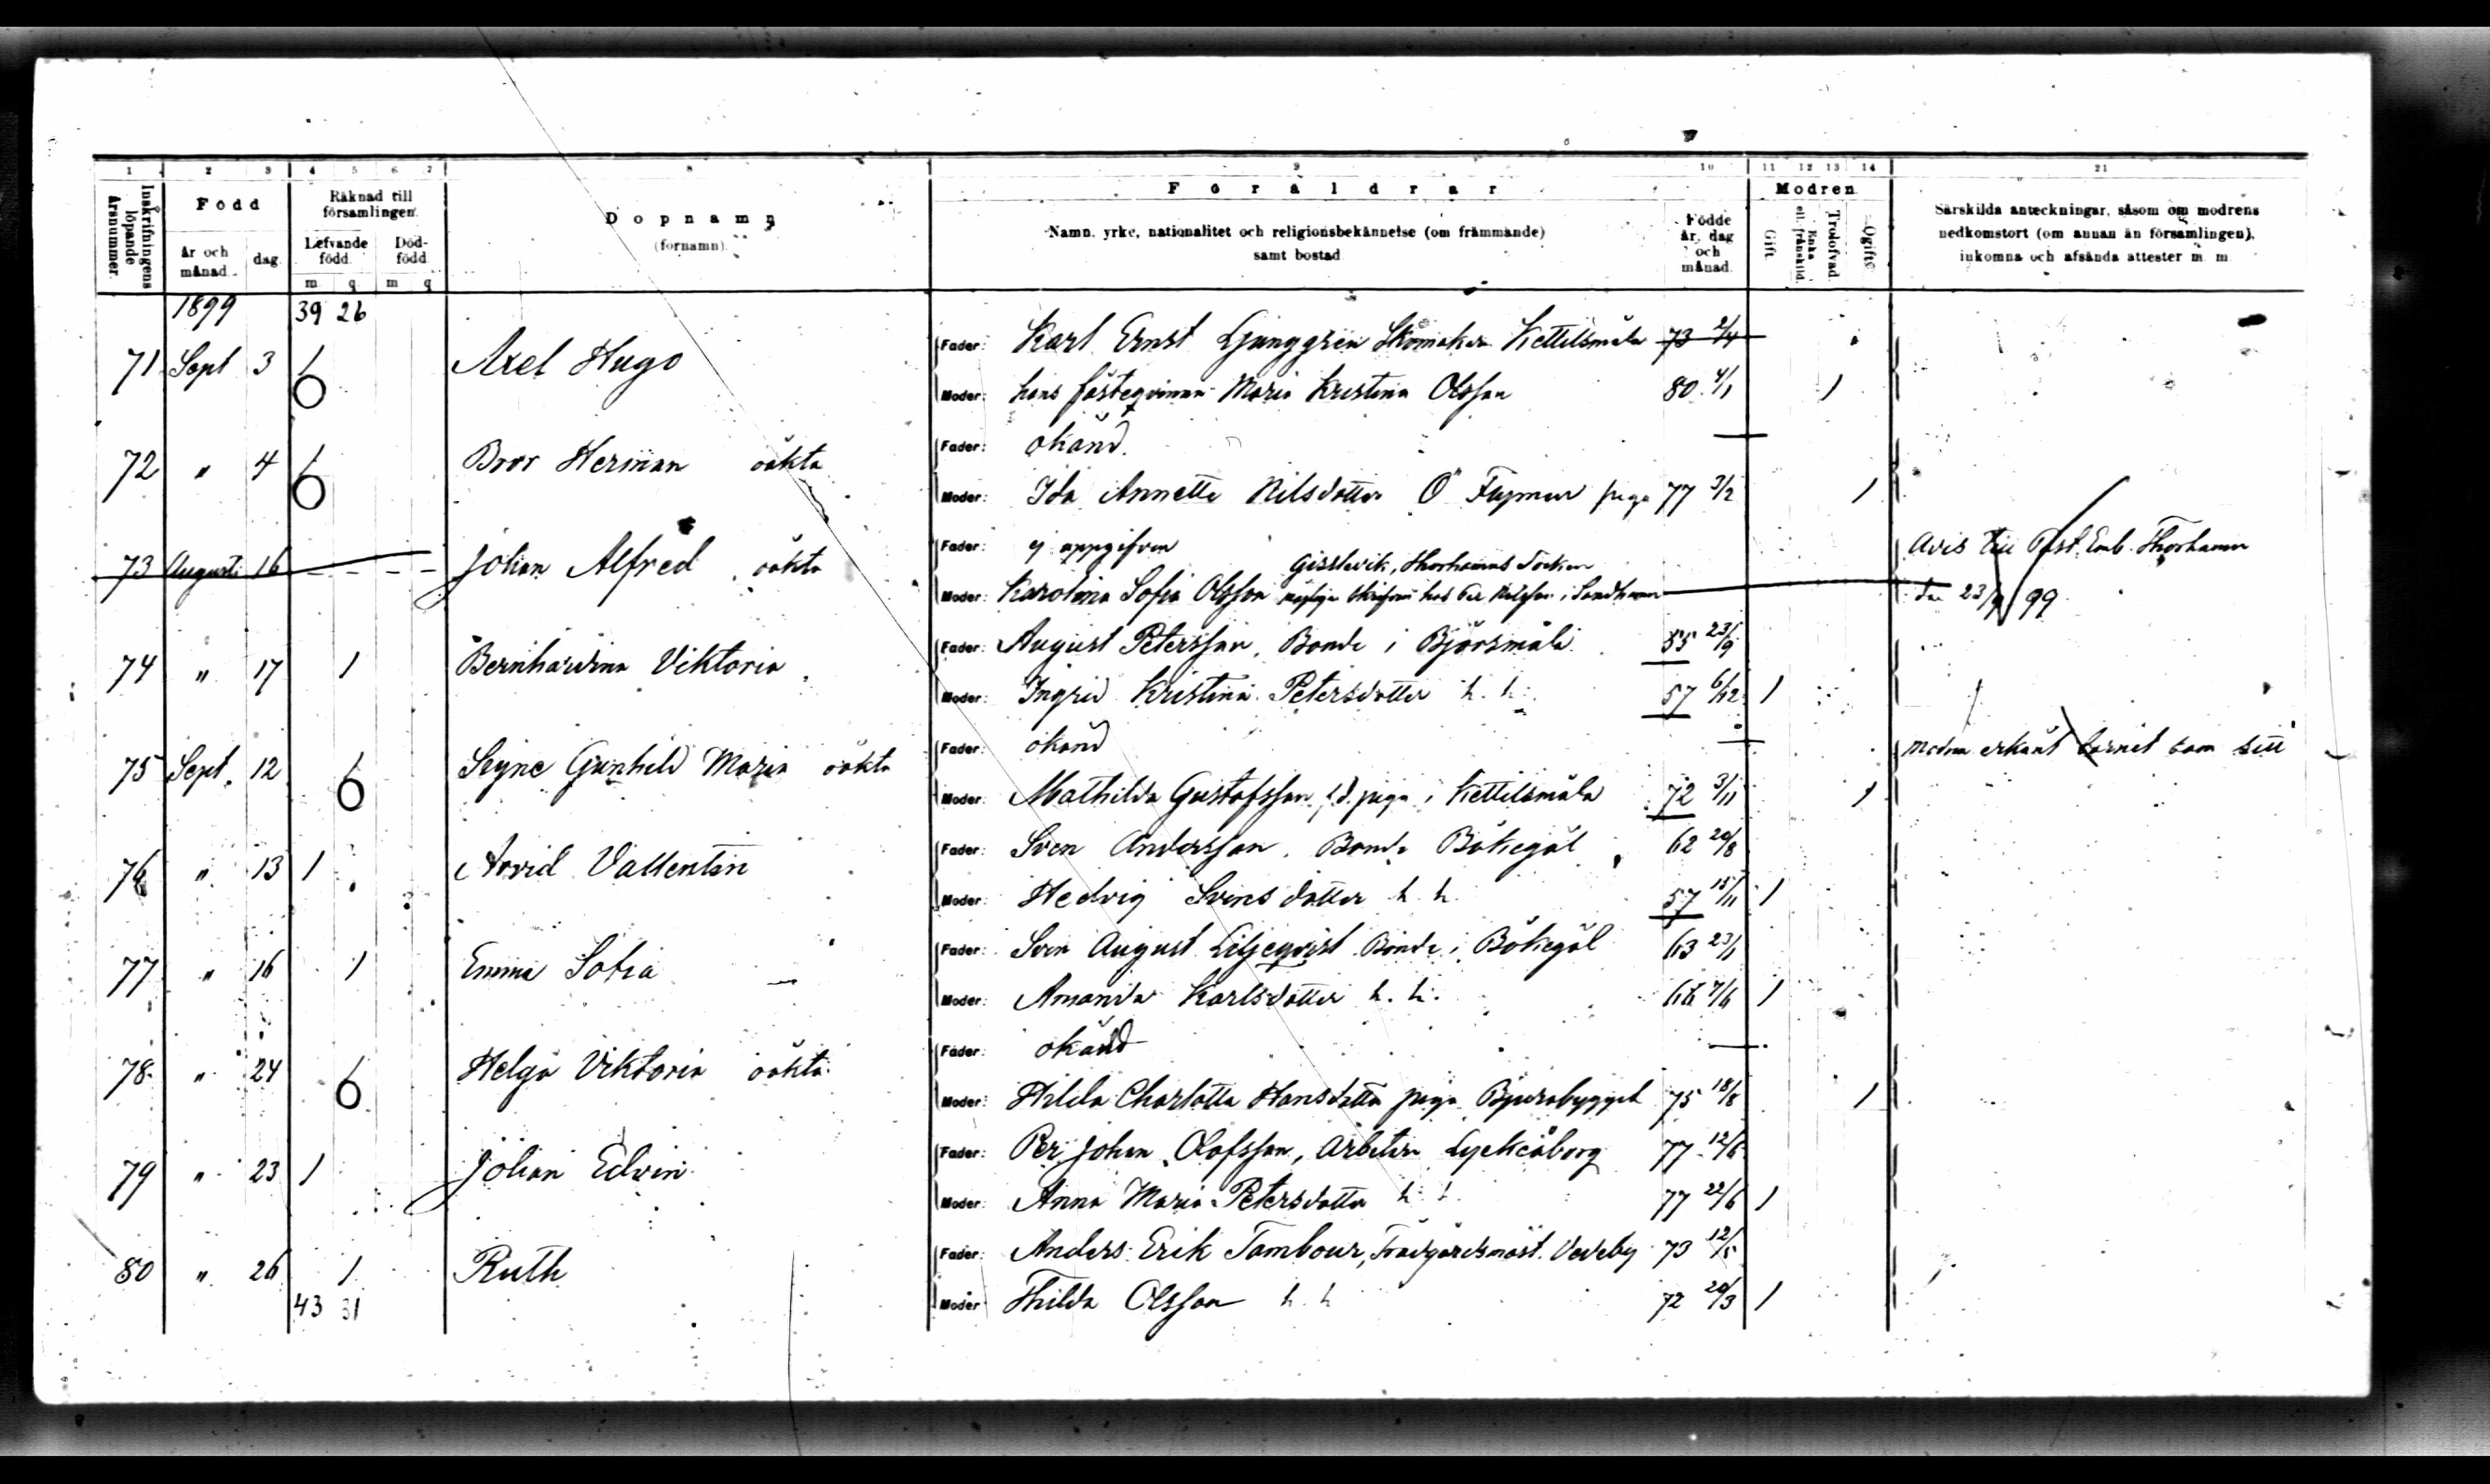 1 2 3 4 5 6 7 8 9 10 11 12 13 14 21
Inskrifningens löpande årsnummer
Född
Räknad till församlingen.
Dopnamn
(förnamn).
Föräldrar
Namn, yrke, nationalitet och religionsbekännelse (om främmande)
samt bostad
Födde år, dag och månad.
Modren
Gift
Enka ell. frånskild.
Trolofvad
Ogift
Särskilda anteckningar, såsom om modrens
nedkomstort (om annan än församlingen),
inkomna och afsända attester m. m.
År och månad.
dag
Lefvande född.
Död-född
m q m q
1899 39 26
71 Sept 3 1 Axel Hugo Fader: Karl Ernst Ljunggren Skomakare Kettilsmåla 73 2/4
Moder: hans fästeqvinna Maria Kristina Olsson 80 4/1 1
72 " 4 1 Bror Herman oäkta Fader: okänd. —
Moder: Ida Annette Nilsdotter Ö Flymen piga 77 3/2 1
73 Augusti 16 - - - - Johan Alfred oäkta Fader: ej uppgifven Avis till Past. Emb. Thorhamn
Gisslevik, Thorhamns Socken
Moder: Karolina Sofia Olsson hos Per Nilsson i Sandhamn den 23/9 99
74 " 17 1 Bernhardina Viktoria Fader: August Petersson, Bonde i Björsmåla 55 23/9
Moder: Ingrid Kristina Petersdotter h. h. 57 6/12 1
75 Sept. 12 Signe Gunhild Maria oäkta Fader: okänd — modren erkänt barnet som sitt
Moder: Mathilda Gustafsson f.d. piga i Kettilsmåla 72 3/11 1
76 " 13 1 Arvid Vallentin Fader: Sven Andersson. Bonde Bökegöl 62 20/8
Moder: Hedvig Svensdotter h. h. 57 15/11 1
77 " 16 1 Emma Sofia — Fader: Sven August Liljeqvist Bonde i Bökegöl 63 23/1
Moder: Amanda Karlsdotter h. h. 66 7/6 1
78 " 24 Helga Viktoria oäkta Fader: okänd —
Moder: Hilda Charlotta Hansdotter piga Bjurabygget 75 18/8 1
79 " 23 1 Johan Edvin Fader: Per Johan Olofsson, Arbetare Lyckåborg 77 12/6
Moder: Anna Maria Petersdotter h. h. 77 22/6 1
80 " 26 1 Ruth Fader: Anders Erik Tambour, Trädgårdsmäst. Vedeby 73 12/5
43 31 Moder: Thilda Olsson h. h. 72 20/3 1